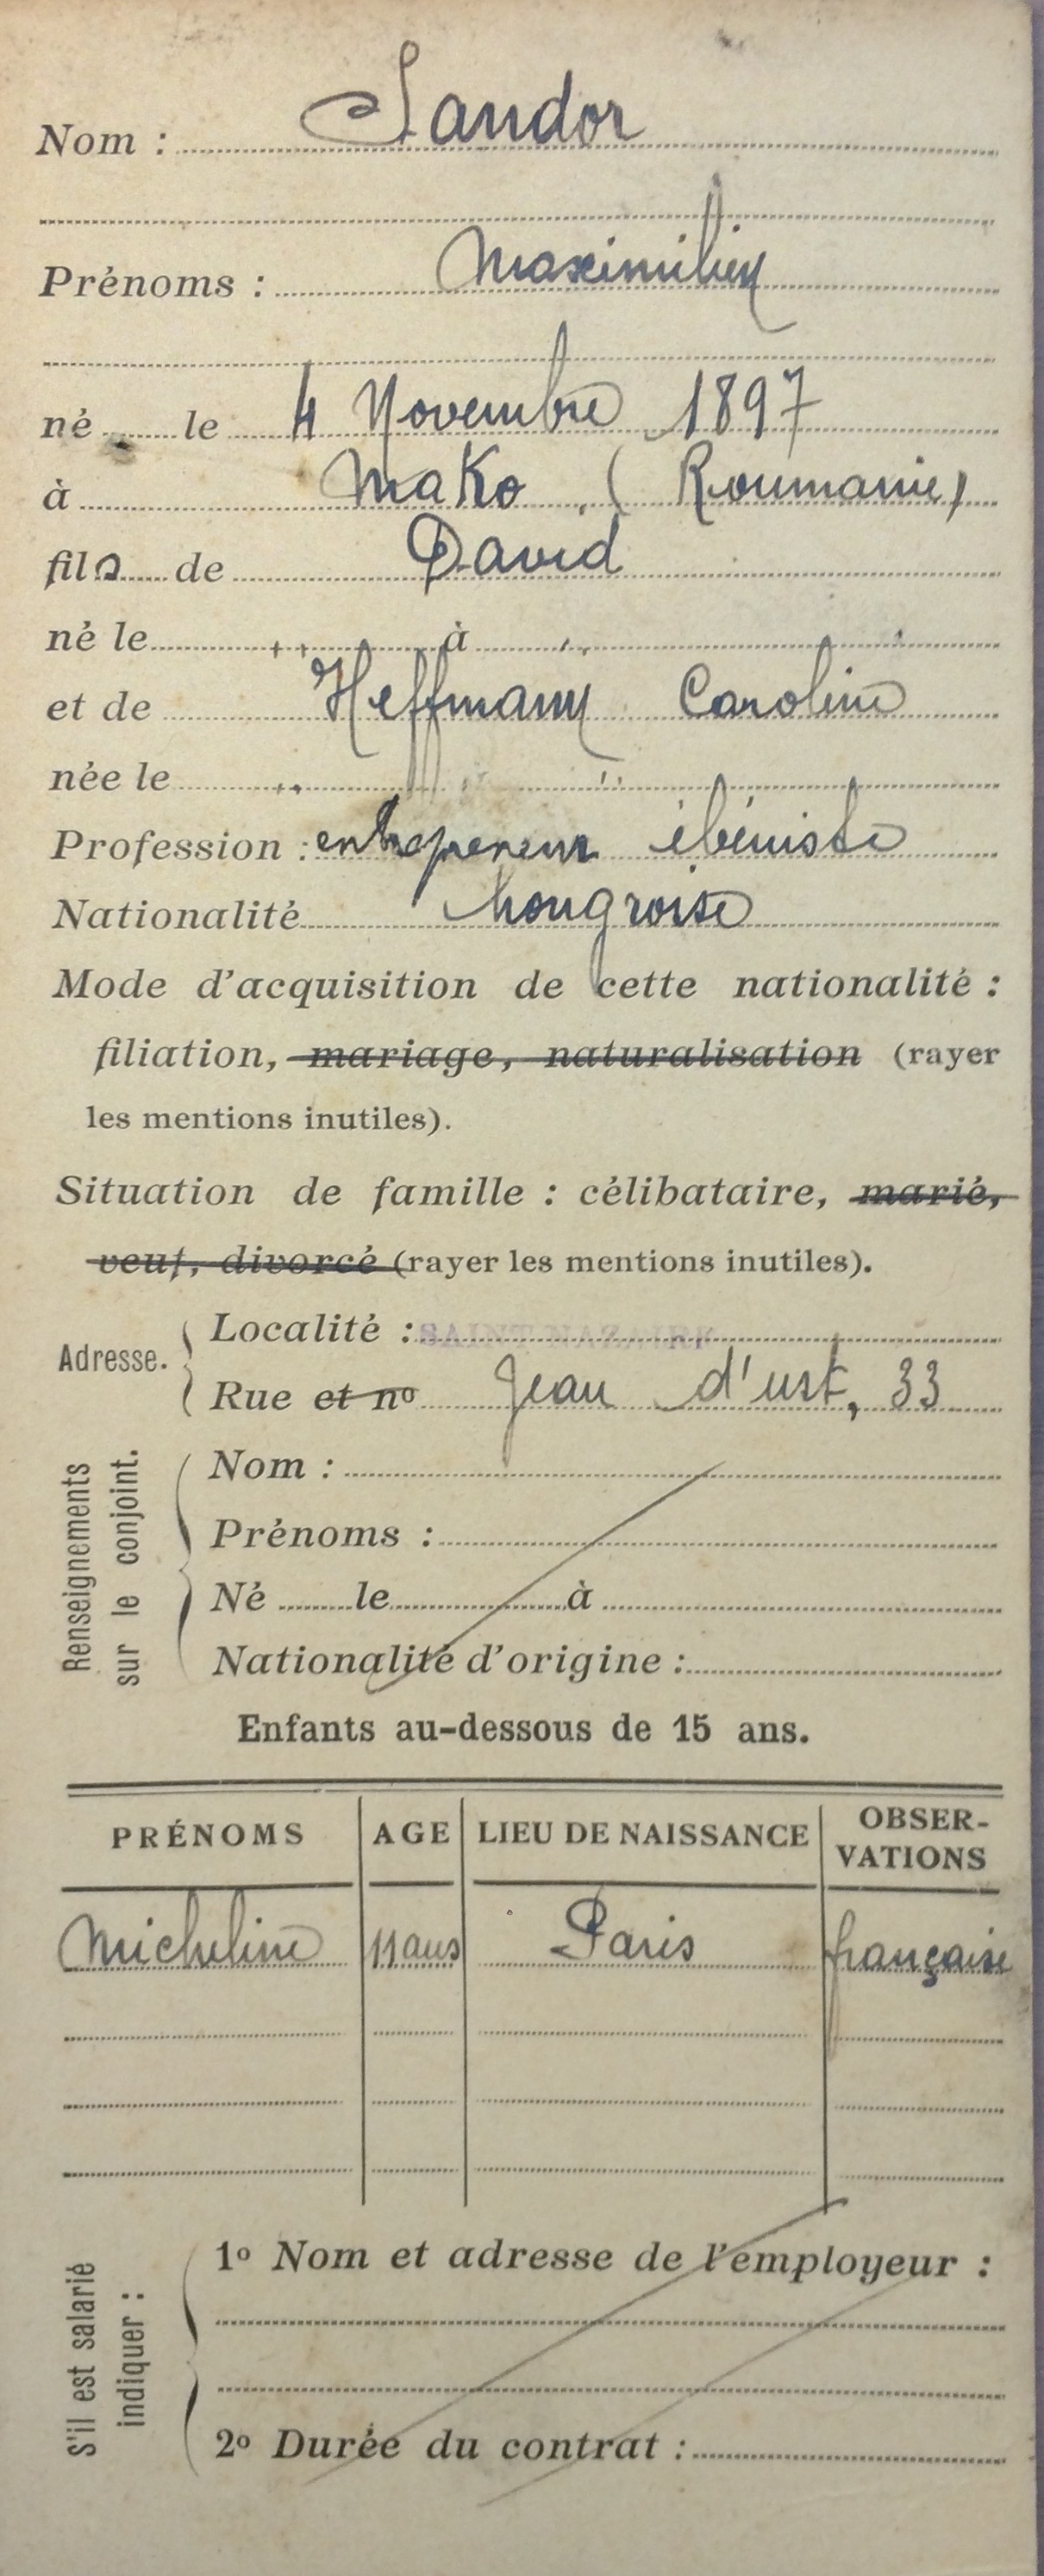 Nom : Sandor
Prénoms : Maximilien
né le 4 Novembre 1897
à Mako (Roumanie)
fils de David
né le à
et de Heffmann Caroline
née le
Profession : entrepreneur ébéniste
Nationalité hongroise
Mode d'acquisition de cette nationalité :
filiation, mariage, naturalisation (rayer
les mentions inutiles).
Situation de famille : célibataire, marié,
veuf, divorcé (rayer les mentions inutiles).
Adresse.
Localité :
Rue et no Jean d'ust, 33
Renseignements
sur le conjoint.
Nom :
Prénoms :
Né le à
Nationalité d'origine :
Enfants au-dessous de 15 ans.
PRÉNOMS AGE LIEU DE NAISSANCE OBSER-
VATIONS
Micheline 11 ans Paris française
S'il est salarié
indiquer :
1o Nom et adresse de l'employeur :
2o Durée du contrat :